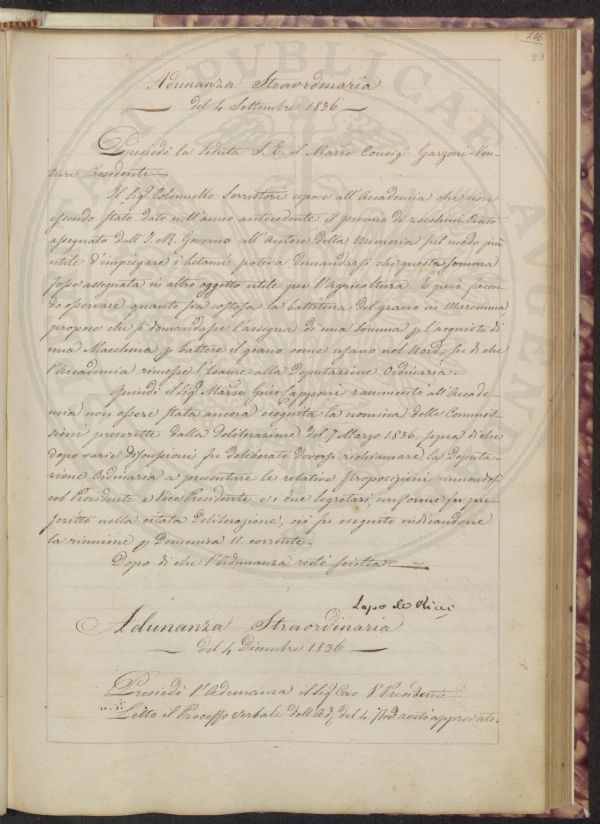 206
99
Adunanza Straordinaria
del 4 Settembre 1836
Presiedè la Seduta S. E. il Marse Consigl. Garzoni-Ven-
turi Presidente
Il Sigr Colonnello Serristori espose all'Accademia che non
essendo stato dato nell'anno antecedente il premio di zecchini Cento
assegnato dall'I. R. Governo all'Autore della Memoria sul modo più
utile d'impiegare i letami poteva domandarsi che questa somma
fosse assegnata in altro oggetto utile per l'Agricoltura. E però facen-
do osservare quanto sia costosa la battitura del grano in Maremma,
propose che si domandasse l'assegna di una somma p l'acquisto di
una Macchina p battere il grano come usano nel Nord, su di che
l'Accademia rimesse l'esame alla Deputazione Ordinaria.
Quindi il Sigr Marse Gino Capponi rammentò all'Accade-
mia non essere stata ancora eseguita la nomina delle Commis-
sioni prescritte dalla deliberazione del 7 Marzo 1836, sopra di che
dopo varie discussioni fu deliberato doversi richiamare la Deputa-
zione Ordinaria a presentare le relative Proposizioni riunendosi
col Presidente e Vice Presidente, e i due Segretari, conforme fu pre-
scritto nella citata Deliberazione, ciò fu eseguito indicandone
la riunione p Domenica 11. corrente.
Dopo di che l'Adunanza restò sciolta.
Lapo de Ricci
Adunanza Straordinaria
del 4 Dicembre 1836
Presiedè l'Adunanza il Sig Cav. Presidente
Letto il Processo verbale dell'Adza del 4. restò approvato.